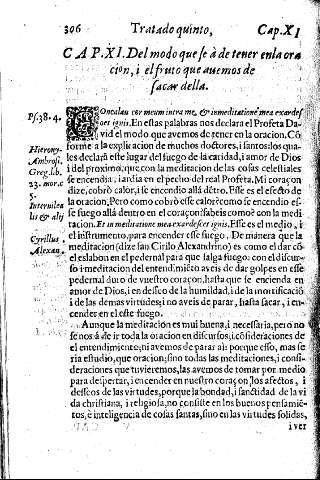 306 Tratado quinto, Cap.XI
CAP.XI. Del modo que se à de tener en la ora
cion, i el fruto que auemos de
sacar della.
Psal. 38. 4.
COncaluit cor meum intra me, & in meditatione mea exardes
cet ignis. En estas palabras nos declara el Profeta Da
vid el modo que avemos de tener en la oracion. Cõ
forme a la explicacion de muchos doctores, i santos: los qua
les declarã este lugar del fuego de la caridad, i amor de Dios
i del proximo, que con la meditacion de las cosas celestiales
se encendia, i ardia en el pecho del real Profeta. Mi coraçon
dize, cobrò calor, i se encendio allà dẽtro. Esse es el efecto de
la oracion. Pero como cobrò esse calor? como se encendio es-
se fuego allà dentro en el coraçon? sabeis como? con la medi
tacion. Et in meditatione mea exardescet ignis. Esse es el medio, i
el instrumento, para encender esse fuego. De manera que la
meditacion (dize san Cirilo Alexandrino) es como el dar cõ
el eslabon en el pedernal para que salga fuego. con el discur-
so i meditacion del entendimiẽto aveis de dar golpes en esse
pedernal duro de vuestro coraçon, hasta que se encienda en
amor de Dios, i en desseo de la humildad, i de la mortificaciõ
i de las demas virtudes; i no aveis de parar, hasta sacar, i en-
cender en el este fuego.
Hierony-
Ambrosi.
Greg. lib.
23. mor. c
5.
lis & alij
Cyrillus
Alexan.
Aunque la meditacion es mui buena, i necessaria, pero no
se nos à de ir toda la oracion en discursos, i cõsideraciones de
el entendimiento; ni avemos de parar ai: porque esso, mas se
ria estudio, que oracion; sino todas las meditaciones, i consi-
deraciones que tuvieremos, las avemos de tomar por medio
para despertar, i encender en nuestro coraçon los afectos, i
desseos de las virtudes, porque la bondad, i sanctidad de la vi
da christiana, i religiosa, no consiste en los buenos pensamiẽ-
tos, è inteligencia de cosas santas, sino en las virtudes solidas,
i ver